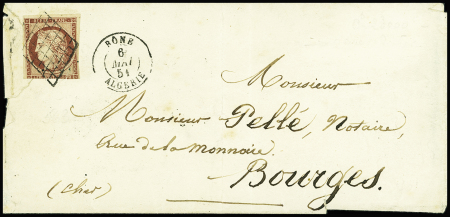 REPUB. FRANC.
BÔNE
6
MAI
51
ALGERIE
Monsieur
Monsieur Pellé, Notaire,
Rue de la monnaie.
Bourges.
(Cher)